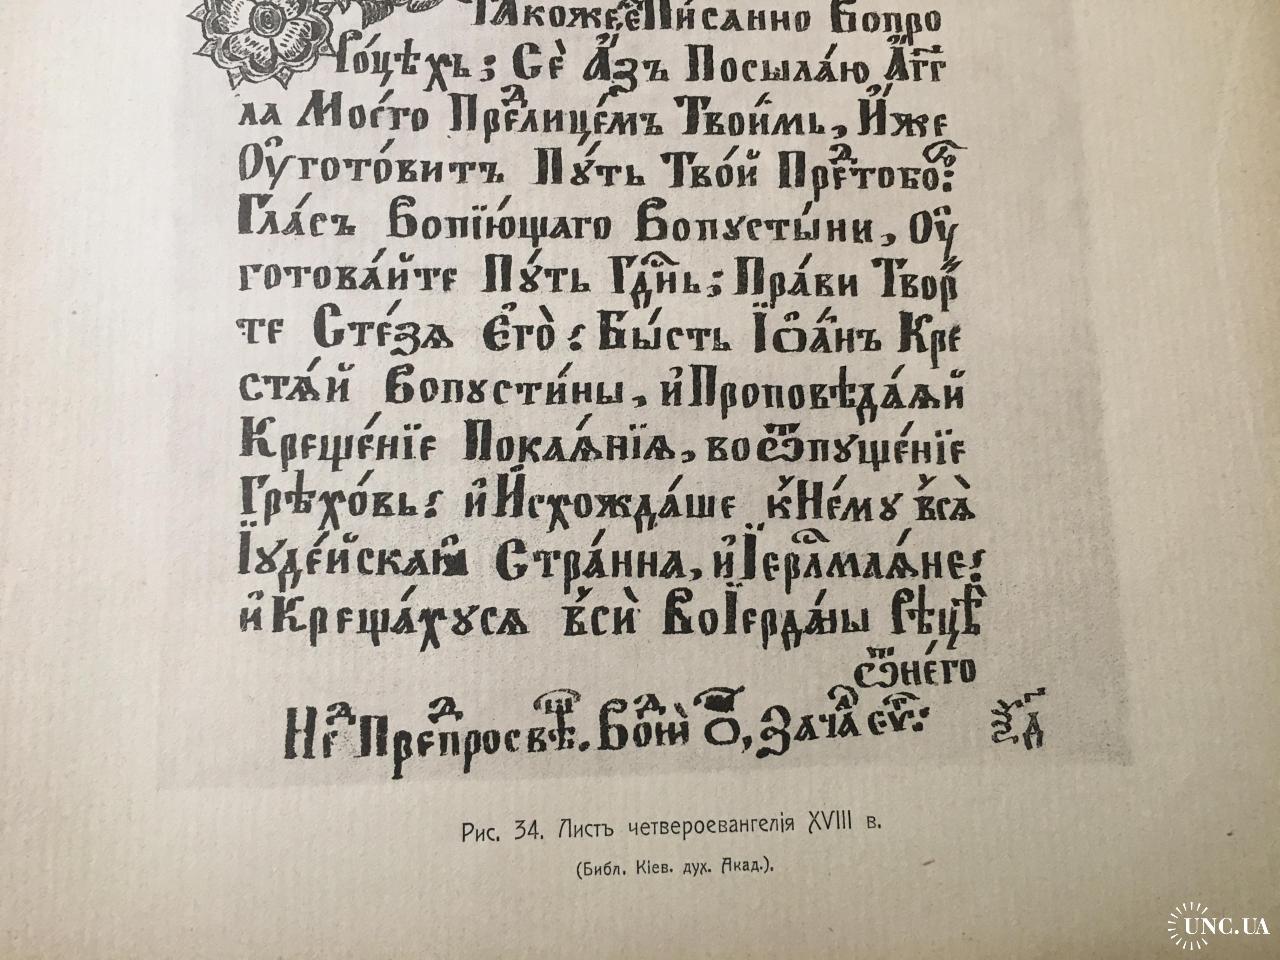 ꙗкоже є҆Пи́санно Вопро
ро́цѣхъ; Сѐ А҆́зъ Посыла́ю А҆́гг҃
ла Моегѡ̀ Преⷣлице́мъ Твои́мь, И҆́же
Оу҆гото́витъ Пꙋ́ть Тво́й Преⷣтобо́ю:
Гла́съ Вопїю́щаго Вопꙋсты́ни, Оу҆
готова́йте Пꙋ́ть Гдⷭ҇нь; Пра́ви Твор
те Сте́зѧ Є҆го̀: Бы́сть І҆ѡа́нъ Кре
стѧ́й Вопꙋсти́ны, и҆Проповѣда́ѧй
Креще́нїе Покаѧ́нїѧ, во ѿпꙋще́нїе
Грѣхо́вь: и҆И҆схожда́ше к̾Не́мꙋ в̾сѧ̀
Їꙋде́йскаѧ Стра́нна, и҆І҆ерⷭ҇лмлѧ́не:
и҆Креща́хꙋсѧ в̾сѝ Вої҆ерда́ны Рѣцѣ̀
ѿне́го
Неⷣ Преⷣпросвѣⷳ. Бо́ жїй Ѻ, Зачⷧа́ єѵⷢ:
Рис. 34. Листъ четвероевангелія XVIII в.
(Библ. Кіев. дух. Акад.).
UNC.UA